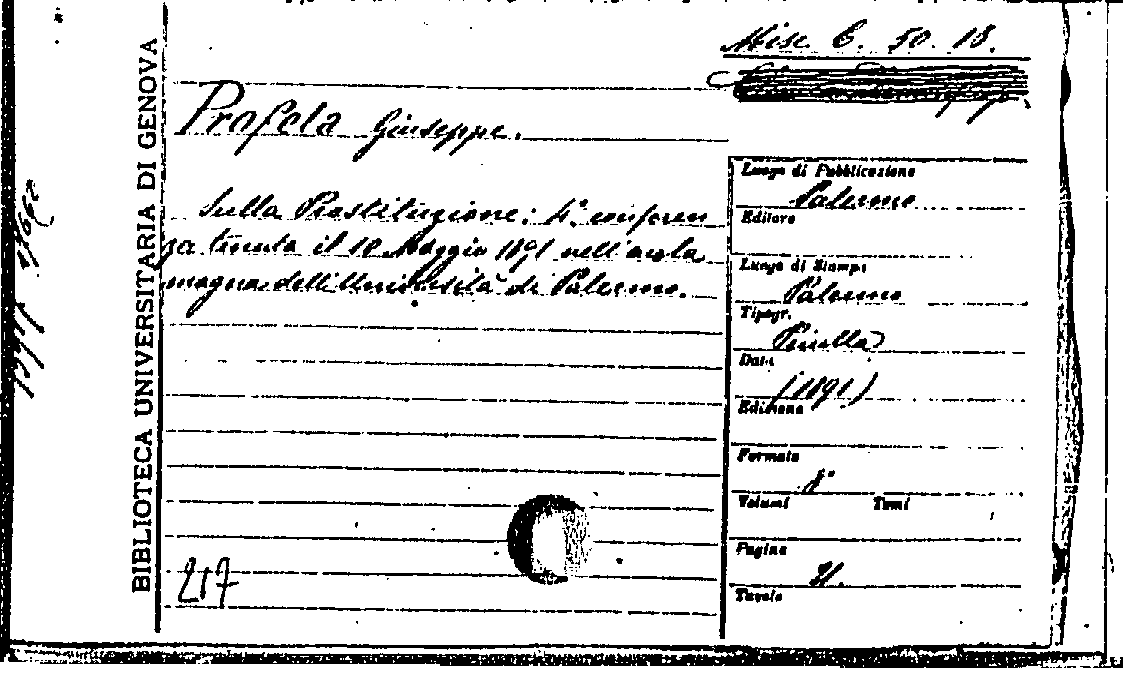 Misc. C. 50. 18.
Profeta Giuseppe.
Sulla Prostituzione: 4ª conferen
za tenuta il 10 Maggio 1891 nell'aula
magna dell'Università di Palermo.
217
BIBLIOTECA UNIVERSITARIA DI GENOVA
Luogo di Pubblicazione
Palermo
Editore
Luogo di Stampa
Palermo
Tipogr.
Data
(1891)
Edizione
Formato
8°
Volumi Tomi
Pagine
Tavole